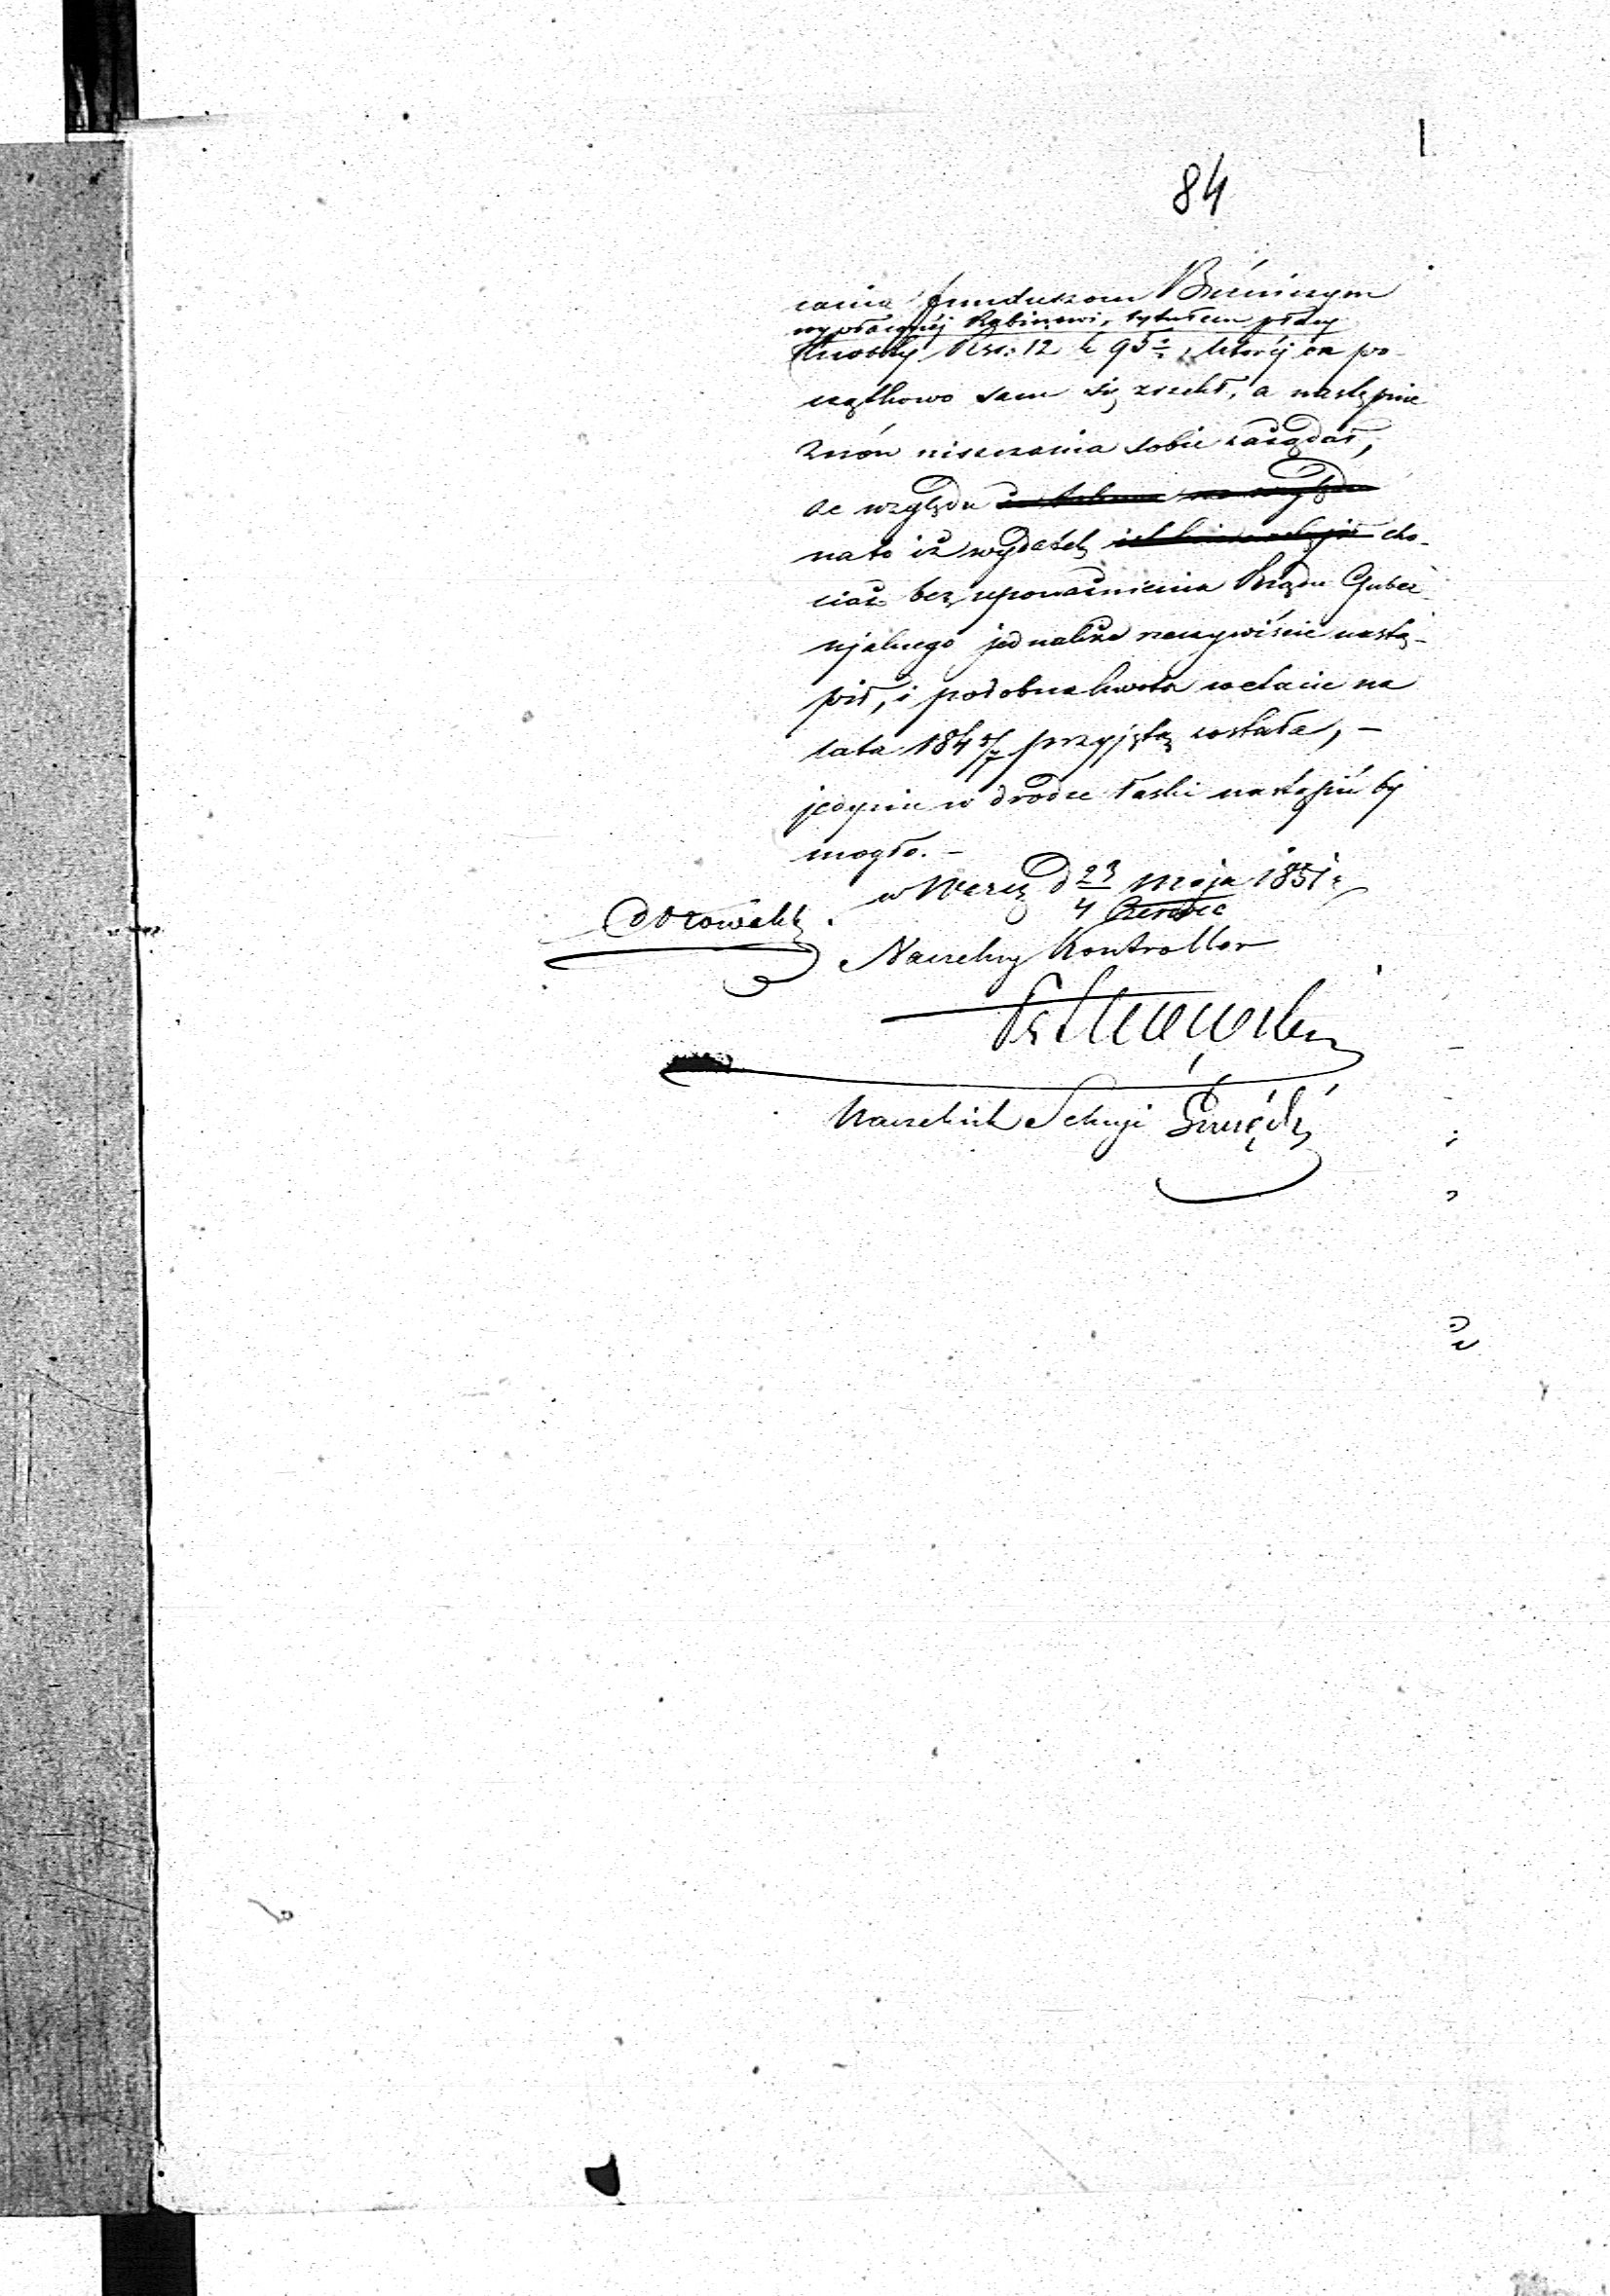 84
cania funduszom Bóżniczym
wypłaconéj Rabinowi, tytułem płacy
kwoty Rsr: 12 k 95 ½, któréj on po-
czątkowo sam się zrzekł, a następnie
znów uiszczenia sobie zażądał,
ze względu
na to iż wydatek cho-
ciaż bez upoważnienia Rządu Guber-
njalnego jednakże rzeczywiście nastą-
pił, i podobna kwota w etacie na
lata 184 5/7 przyjętą została, –
jedynie w drodze łaski nastąpić by
mogło. –
w Warsz d 23 Maja 1851 r
4 Czerwca
Naczelny Kontroller
Naczelnik Sekcyi